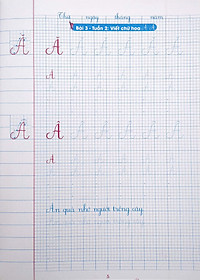 Thứ ngày tháng năm
Bài 3 - Tuần 2: Viết chữ hoa Ă Â
Ă Ă Ă Ă Ă Ă Ă Ă
Ă
Â Â Â Â Â Â Â Â
Â
Ăn quả nhớ người trồng cây.